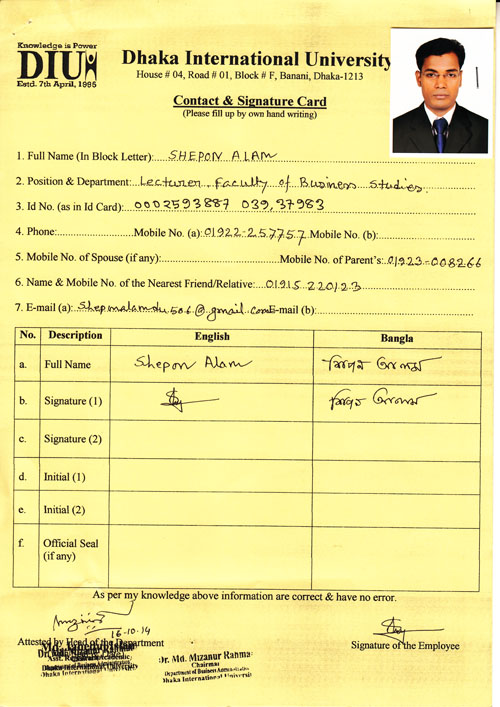 Knowledge is Power
DIU
Estd. 7th April, 1995
Dhaka International University
House # 04, Road # 01, Block # F, Banani, Dhaka-1213
Contact & Signature Card
(Please fill up by own hand writing)
1. Full Name (In Block Letter): SHEPON ALAM
2. Position & Department: Lecturer, Faculty of Business Studies.
3. Id No. (as in Id Card): 0002593887 039,37983
4. Phone: Mobile No. (a): 01922-257757 Mobile No. (b):
5. Mobile No. of Spouse (if any): Mobile No. of Parent's: 01923-008266
6. Name & Mobile No. of the Nearest Friend/Relative: 01915 220123
7. E-mail (a): Shepmalamdu506@gmail.com E-mail (b):
No. Description English Bangla
a. Full Name Shepon Alam শিপন আলম
b. Signature (1) শিপন আলম
c. Signature (2)
d. Initial (1)
e. Initial (2)
f. Official Seal
(if any)
As per my knowledge above information are correct & have no error.
16-10-14
Attested by Head of the Department
Signature of the Employee
Dr. Md. Mizanur Rahma
Chairman
Department of Business Administration
Dhaka International Universit